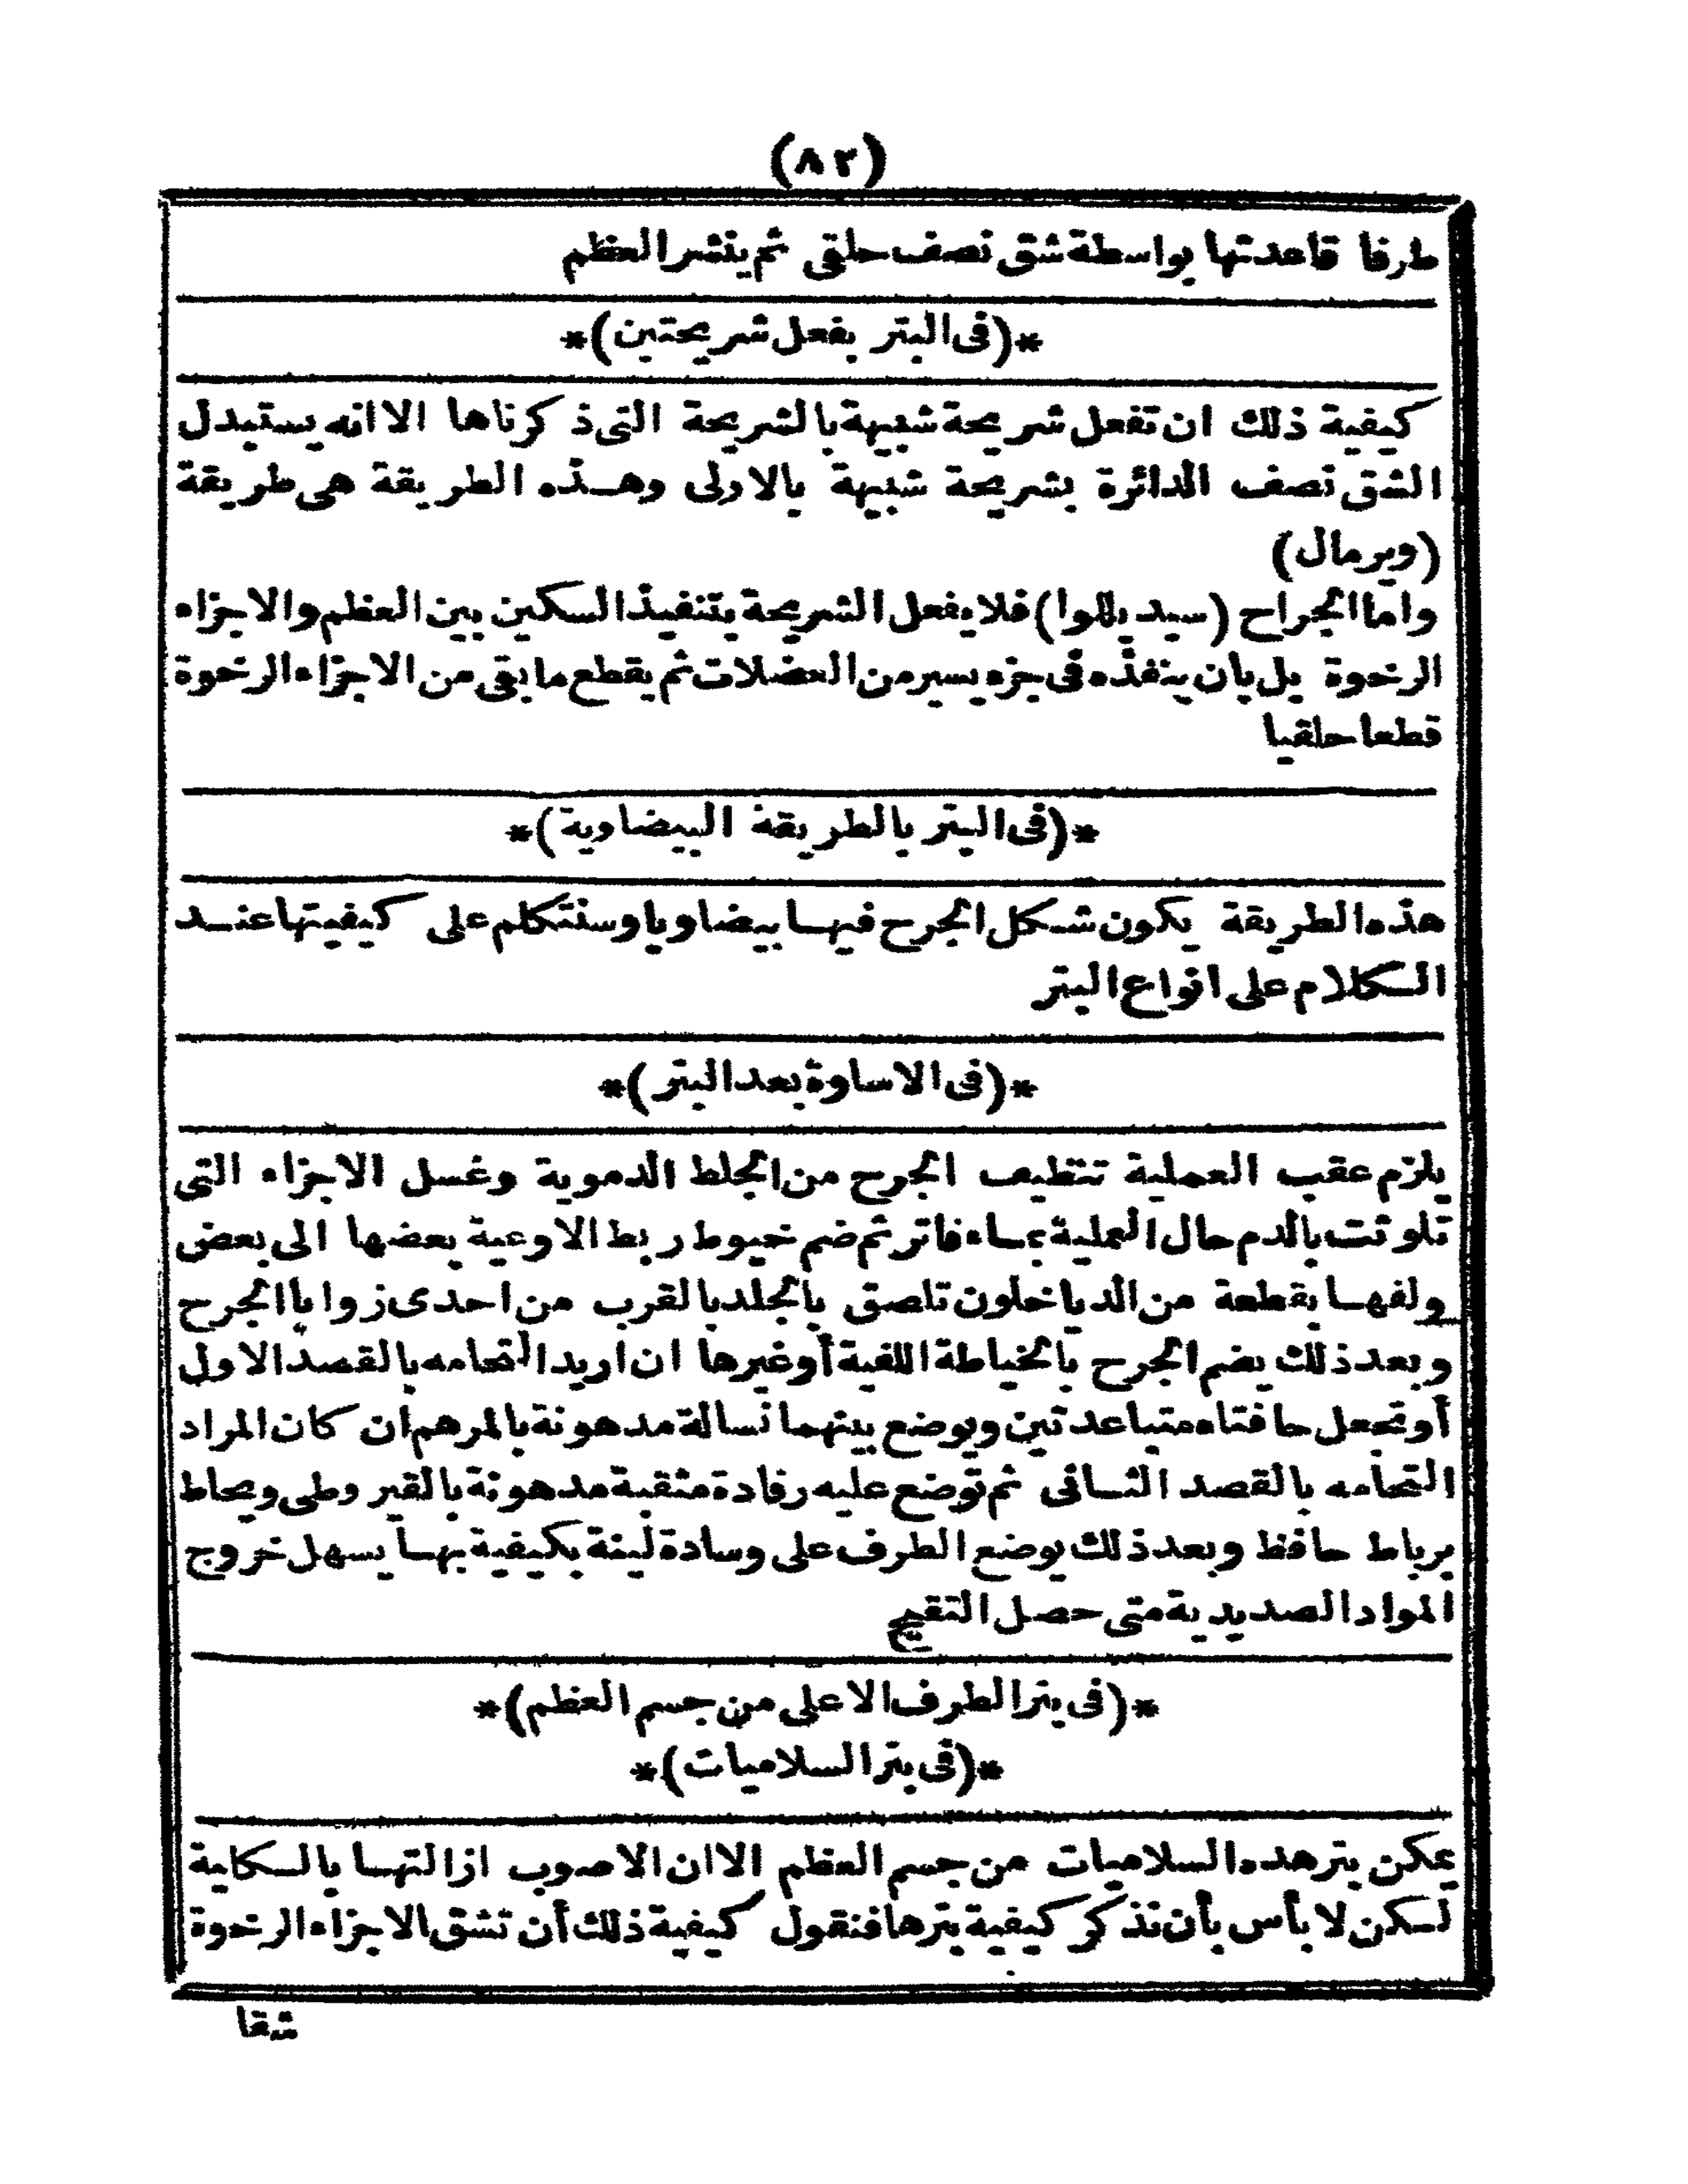 (٨٢)
طرفا قاعدتها بواسطة شق نصف حلقى ثم ينشر العظم
*(فى البتر بفعل شريحتين)*
كيفية ذلك ان تفعل شريحة شبيهة بالشريحة التى ذكرناها الا انه يستبدل
الشق نصف الدائرة بشريحة شبيهة بالاولى وهذه الطريقة هى طريقة
(ويرمال)
واما الجراح (سيديللوا) فلا يفعل الشريحة بتنفيذ السكين بين العظم والاجزاء
الرخوة بل بان ينفذه فى جزء يسير من العضلات ثم يقطع ما بقى من الاجزاء الرخوة
قطعا حلقيا
*(فى البتر بالطريقة البيضاوية)*
هذه الطريقة يكون شكل الجرح فيها بيضاويا وسنتكلم على كيفيتها عند
الكلام على انواع البتر
*(فى الاساوة بعد البتر)*
يلزم عقب العملية تنظيف الجرح من الجلط الدموية وغسل الاجزاء التى
تلوثت بالدم حال العملية بماء فاتر ثم ضم خيوط ربط الاوعية بعضها الى بعض
ولفها بقطعة من الدياخلون تلصق بالجلد بالقرب من احدى زوايا الجرح
وبعد ذلك يضم الجرح بالخياطة اللفية أو غيرها ان اريد التحامه بالقصد الاول
أو تجعل حافتاه متباعدتين ويوضع بينهما نسالة مدهونة بالمرهم ان كان المراد
التحامه بالقصد الثانى ثم توضع عليه رفادة مثقبة مدهونة بالقيروطى ويحاط
برباط حافظ وبعد ذلك يوضع الطرف على وسادة لينة بكيفية بها يسهل خروج
المواد الصديدية متى حصل التقيح
*(فى بتر الطرف الاعلى من جسم العظم)*
*(فى بتر السلاميات)*
يمكن بتر هذه السلاميات من جسم العظم الا ان الاصوب ازالتها بالكلية
لكن لا بأس بأن نذكر كيفية بترها فنقول كيفية ذلك أن تشق الاجزاء الرخوة
شقا